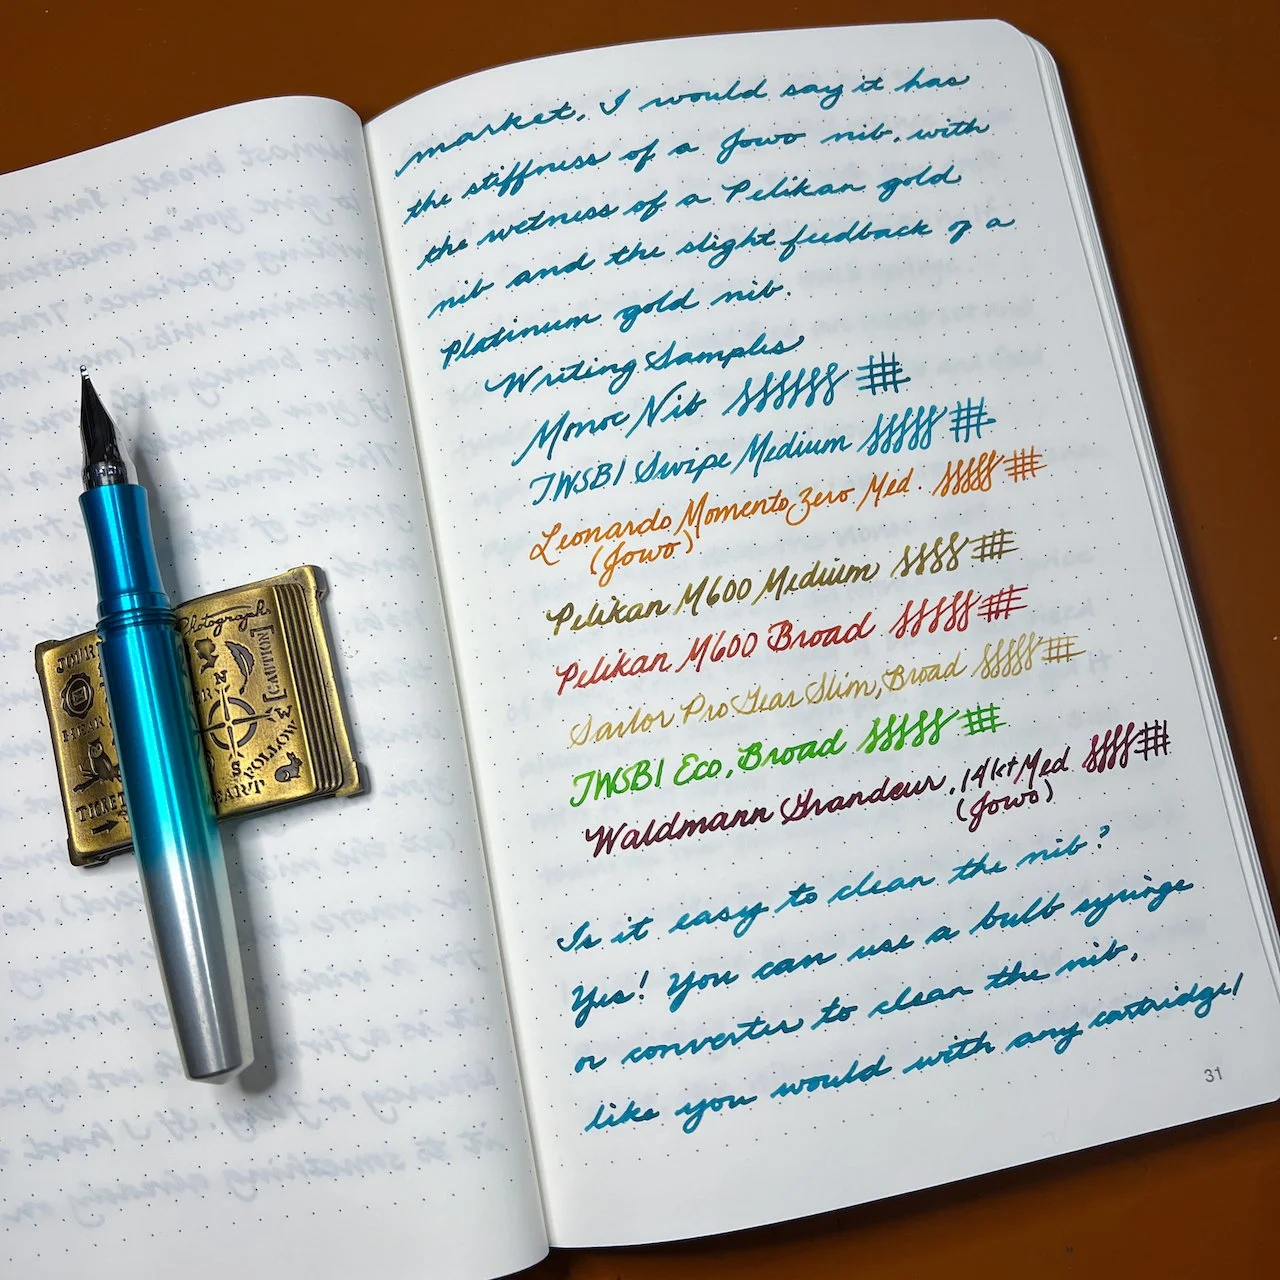 market, I would say it has
the stiffness of a Jowo nib, with
the wetness of a Pelikan gold
nib and the slight feedback of a
Platinum gold nib.
Writing Samples
Monoc Nib
TWSBI Swipe Medium
Leonardo Momento Zero Med.
(Jowo)
Pelikan M600 Medium
Pelikan M600 Broad
Sailor Pro Gear Slim, Broad
TWSBI Eco, Broad
Waldmann Grandeur, 14kt Med
(Jowo)
Is it easy to clean the nib?
Yes! You can use a bulb syringe
or converter to clean the nib,
like you would with any cartridge/
31
Photograph
[CAUTION]
FOLLOW
TICKET